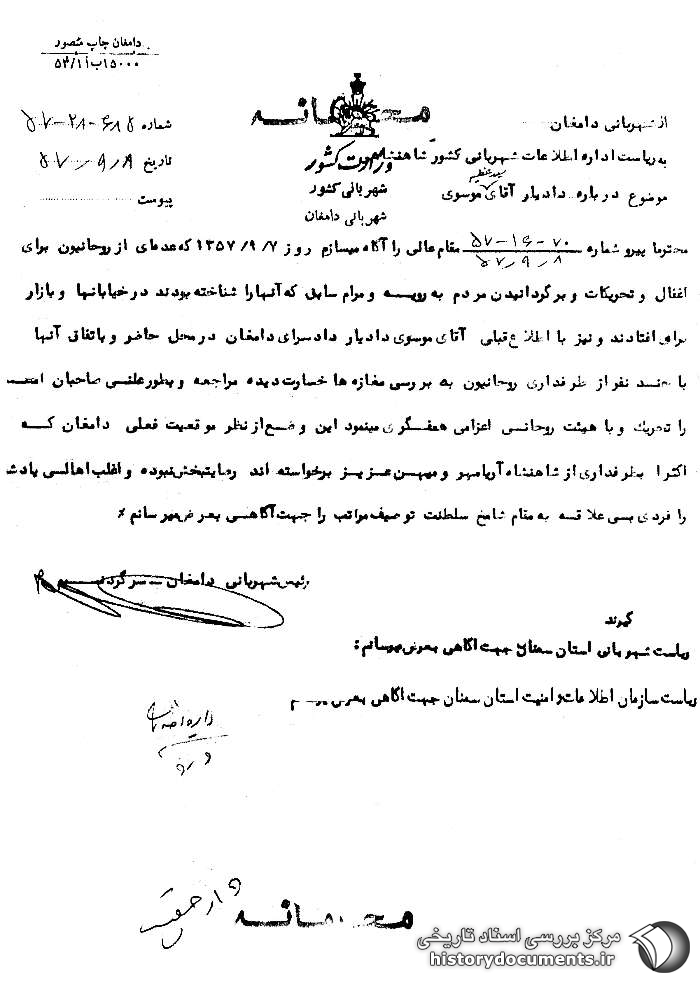 دامغان چاپ منصور
محرمانه
از شهربانی دامغان
شماره ۶۸۵-۲۸-۵۷
به ریاست اداره اطلاعات شهربانی کشور شاهنشاهی
وزارت کشور
تاریخ ۵۷/۹/۸
شهربانی کشور
موضوع درباره دادیار آقای سید عظیم موسوی
پیوست
شهربانی دامغان
محترما پیرو شماره ۷۰-۱۶-۵۷
۵۷/۹/۸ مقام عالی را آگاه میسازم روز ۱۳۵۷/۹/۷ که عده‌ای از روحانیون برای
اغفال و تحریکات و برگردانیدن مردم به رویسه و مرام سابق که آنها را شناخته بودند در خیابانها و بازار
براه افتادند و نیز با اطلاع قبلی آقای موسوی دادیار دادسرای دامغان در محل حاضر و باتفاق آنها
با چند نفر از طرفداری روحانیون به بررسی مغازه ها خسارت دیده مراجعه و بطور علنسی صاحبان
را تحریک و با هیئت روحانسی اعزامی همفکری مینمود این وضع از نظر موقعیت فعلی دامغان کسه
اکثرا بطرفداری از شاهنشاه آریامهر و میهن عزیز برخواسته اند رضایتبخش نبوده و اغلب اهالسی
را فردی بسی علاقسه به مقام شامخ سلطنت توصیف مراتب را جهت آگاهسی بعرض میرسانم ٪
رئیس شهربانی دامغان ــ سرگرد
گیرنده
ریاست شهربانی استان سمنان جهت آگاهی بعرض میرسانم:
ریاست سازمان اطلاعات و امنیت استان سمنان جهت آگاهی بعرض
محرمانه
مرکز بررسی اسناد تاریخی
historydocuments.ir